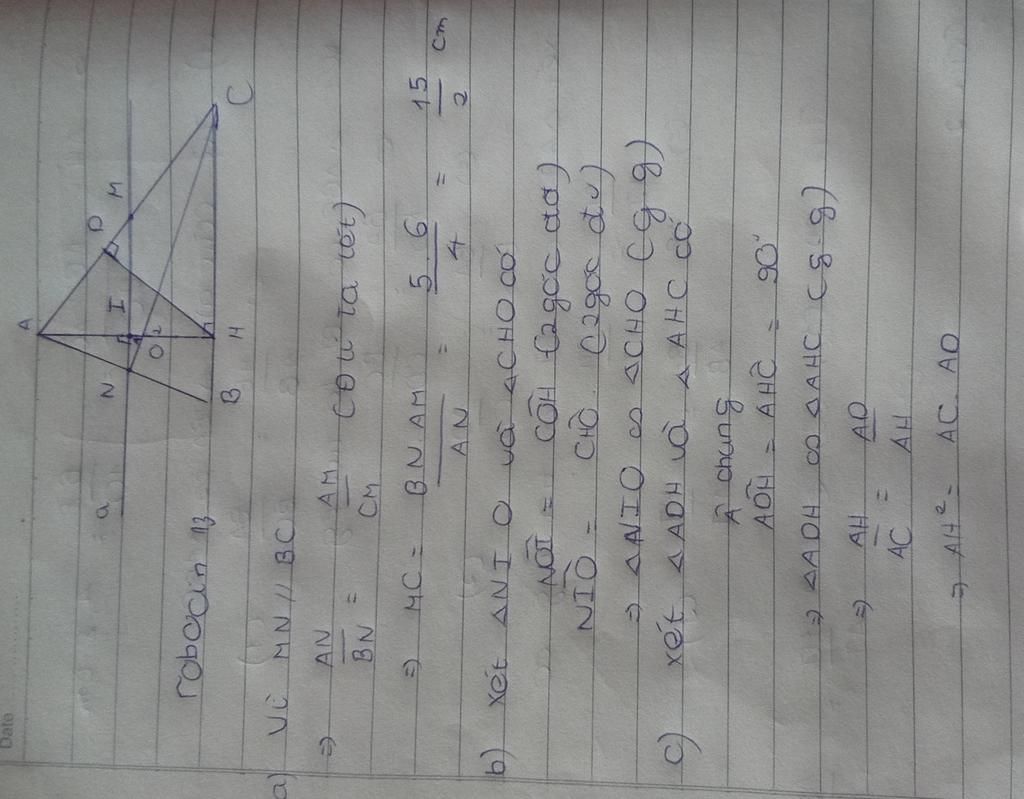 Date
A
a N I D M
O 2
B H C
a) Vì MN // BC
=> AN/BN = AM/CM (Đlí ta lét)
=> MC = BN.AM/AN = 5.6/4 = 15/2 cm
b) xét △NIO và △CHO có
NÔI = CÔH (2góc đđ)
NIÔ = CHÔ (2góc đv)
=> △NIO ∽ △CHO (g g)
c) xét △ADH và △AHC có
Â chung
ADH = AHC = 90°
=> △ADH ∽ △AHC (g.g)
=> AH/AC = AD/AH
=> AH² = AC.AD